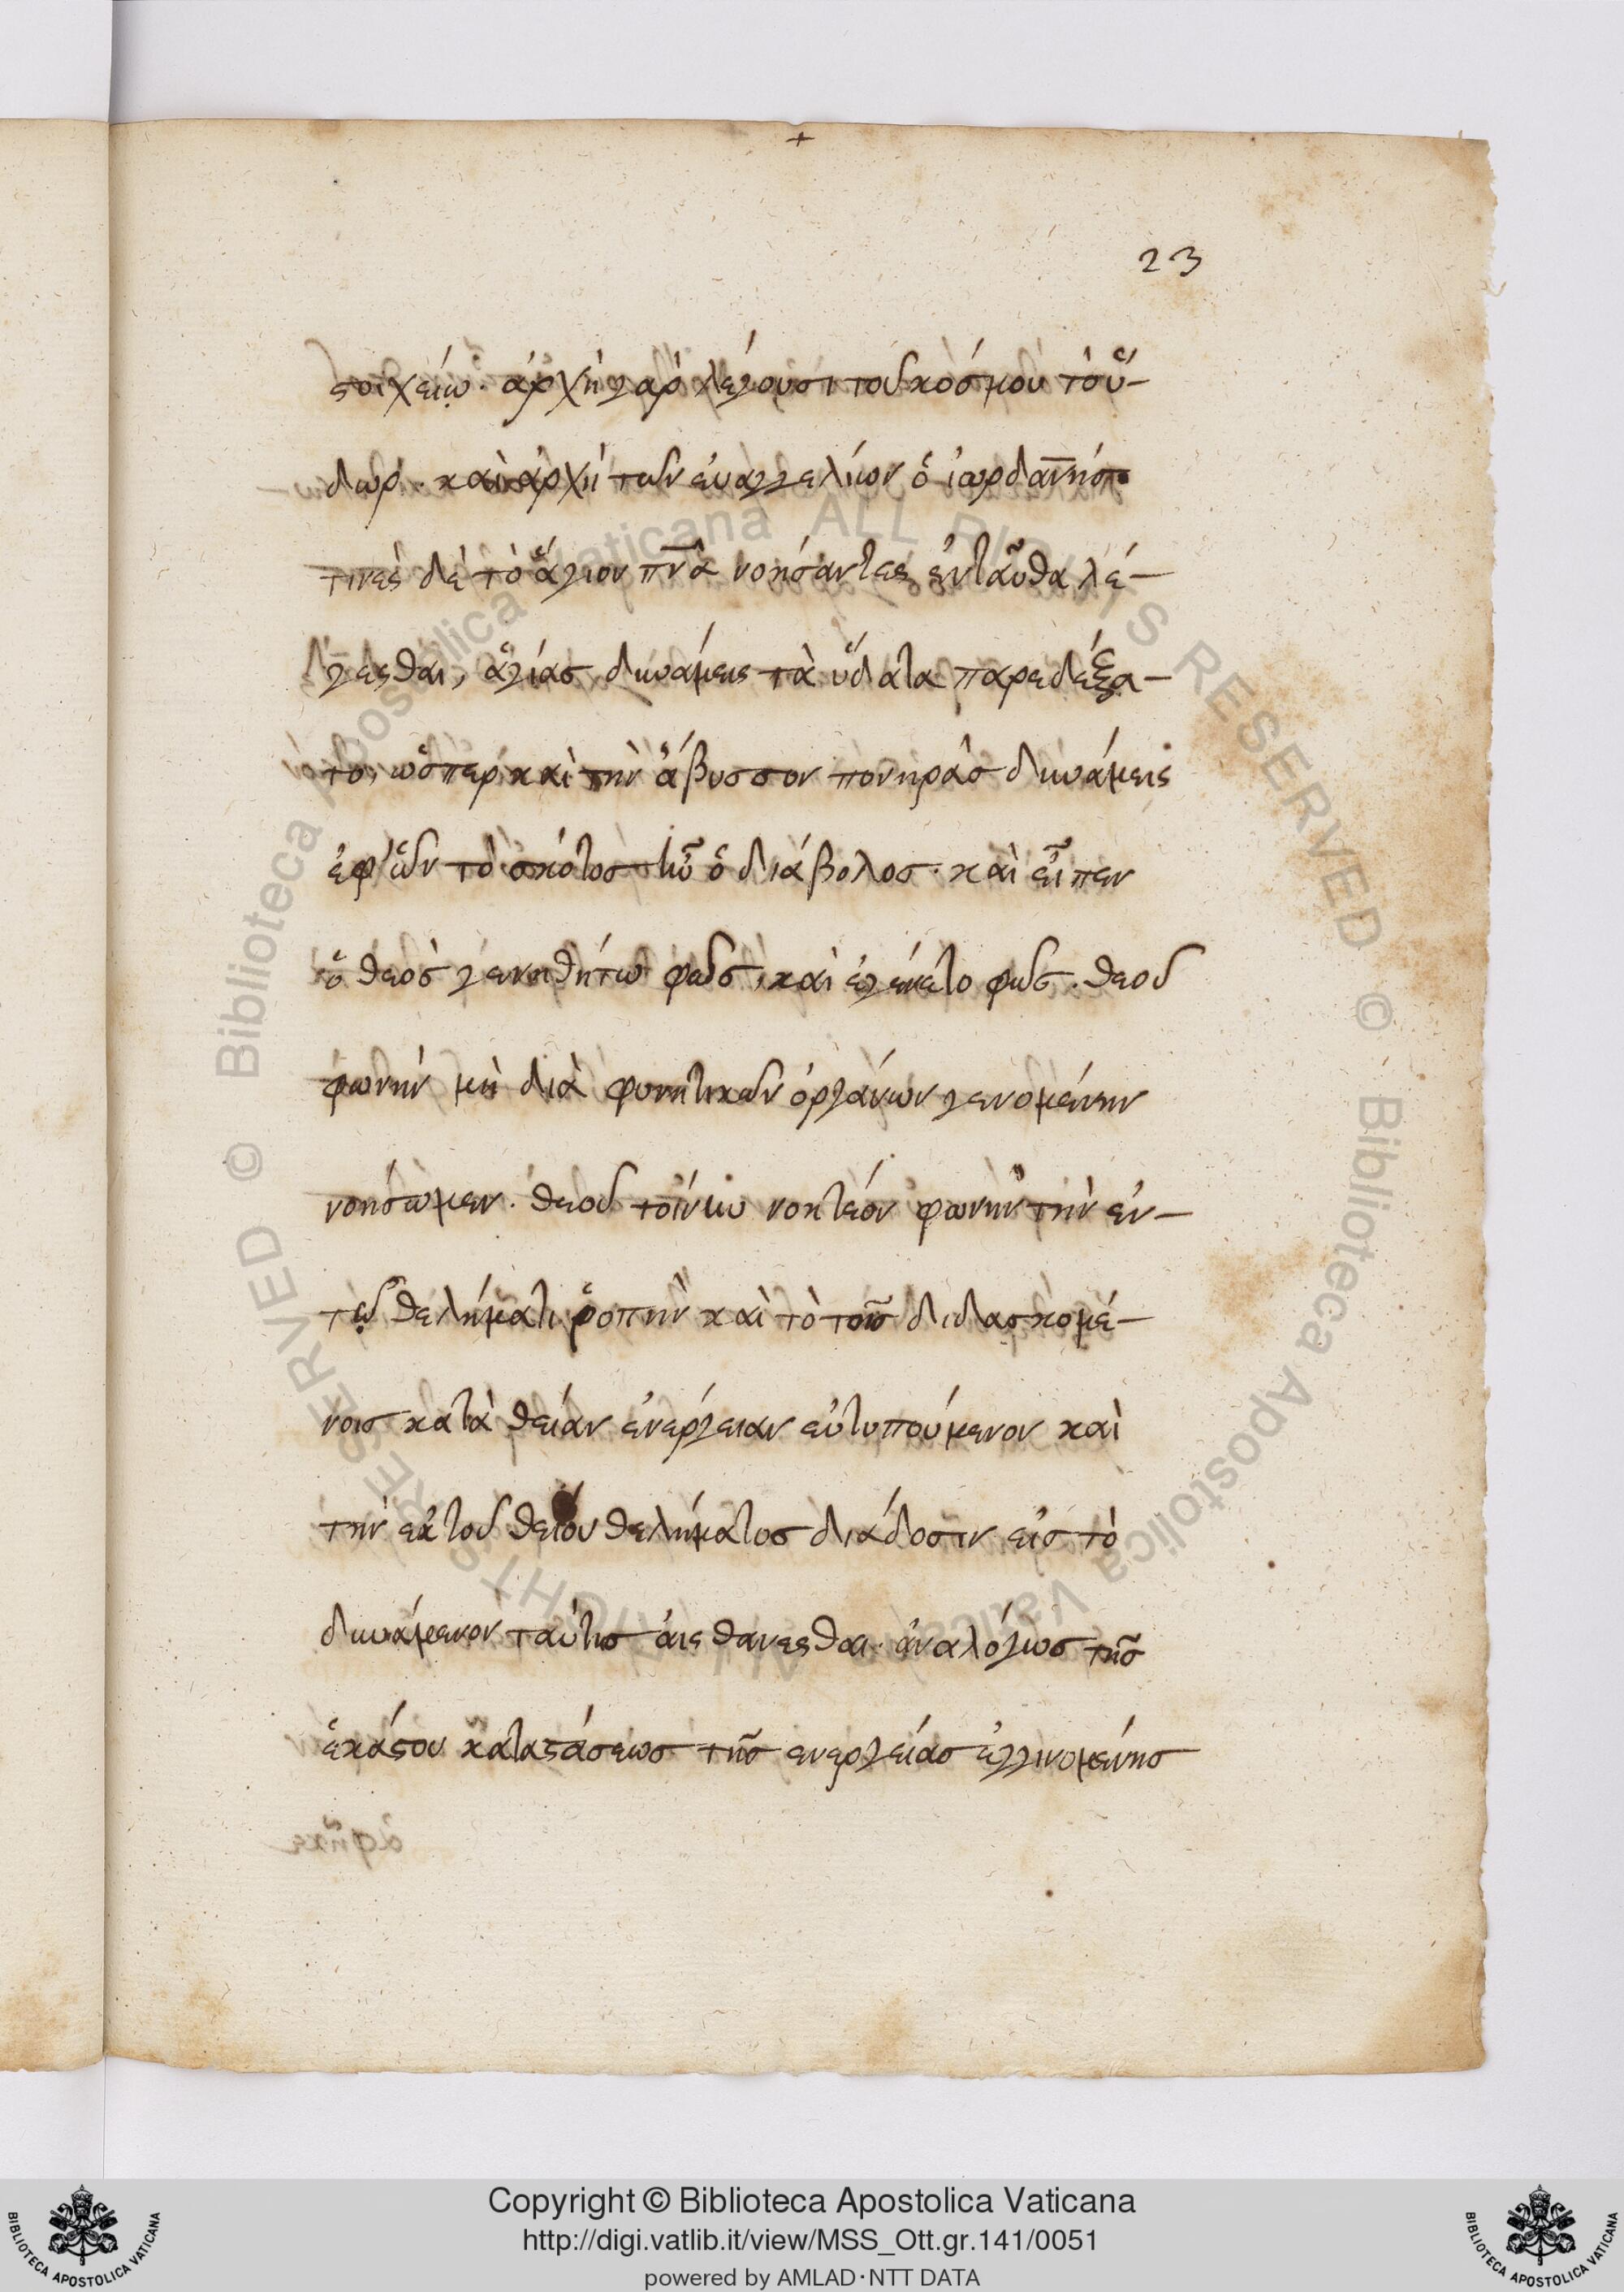 23
στοιχείῳ. ἀρχὴ γαρ λέγουσι τοῦ κόσμου τὸ ὕ-
δωρ. καὶ ἀρχὴ τῶν ἐυαγγελίων ὁ ἰωρδάννησ
τινὲς δὲ τὸ ἅγιον πν̅α νοήσαντες ἐνταῦθα λέ-
γεσθαι, ἁγίασ δυνάμεις τὰ ὕδατα παρεδέξα-
το, ὥσπερ καὶ τὴν ἄβυσσον πονηρὰσ δυνάμεις
ἐφ' ὧν τὸ σκότοσ ἦν ὁ διάβολοσ. καὶ εἶπεν
ὁ θεὸσ γενηθήτω φῶσ, καὶ ἐγένετο φῶσ. θεοῦ
φωνὴν μὴ διὰ φονητικῶν ὀργάνων γενομένην
νοήσωμεν. θεοῦ τοίνυν νοητέον φωνὴν τὴν ἐν-
τῷ θελήματι ῥοπὴν καὶ τὸ τοῖσ διδασκομέ-
νοισ κατὰ θείαν ἐνέργειαν εὐτυπούμενον καὶ
τὴν ἐκ τοῦ θείου θελήματοσ διάδοσιν εἰσ τὸ
δυνάμενον ταύτησ ἀισθανεσθαι. ἀναλόγωσ τῆσ
ἑκάστου καταστάσεωσ τῆσ ενεργείασ ἐγγινομένησ
Copyright © Biblioteca Apostolica Vaticana
http://digi.vatlib.it/view/MSS_Ott.gr.141/0051
powered by AMLAD·NTT DATA
BIBLIOTECA APOSTOLICA VATICANA
BIBLIOTECA APOSTOLICA VATICANA
© Biblioteca Apostolica Vaticana ALL RIGHTS RESERVED
© Biblioteca Apostolica Vaticana ALL RIGHTS RESERVED